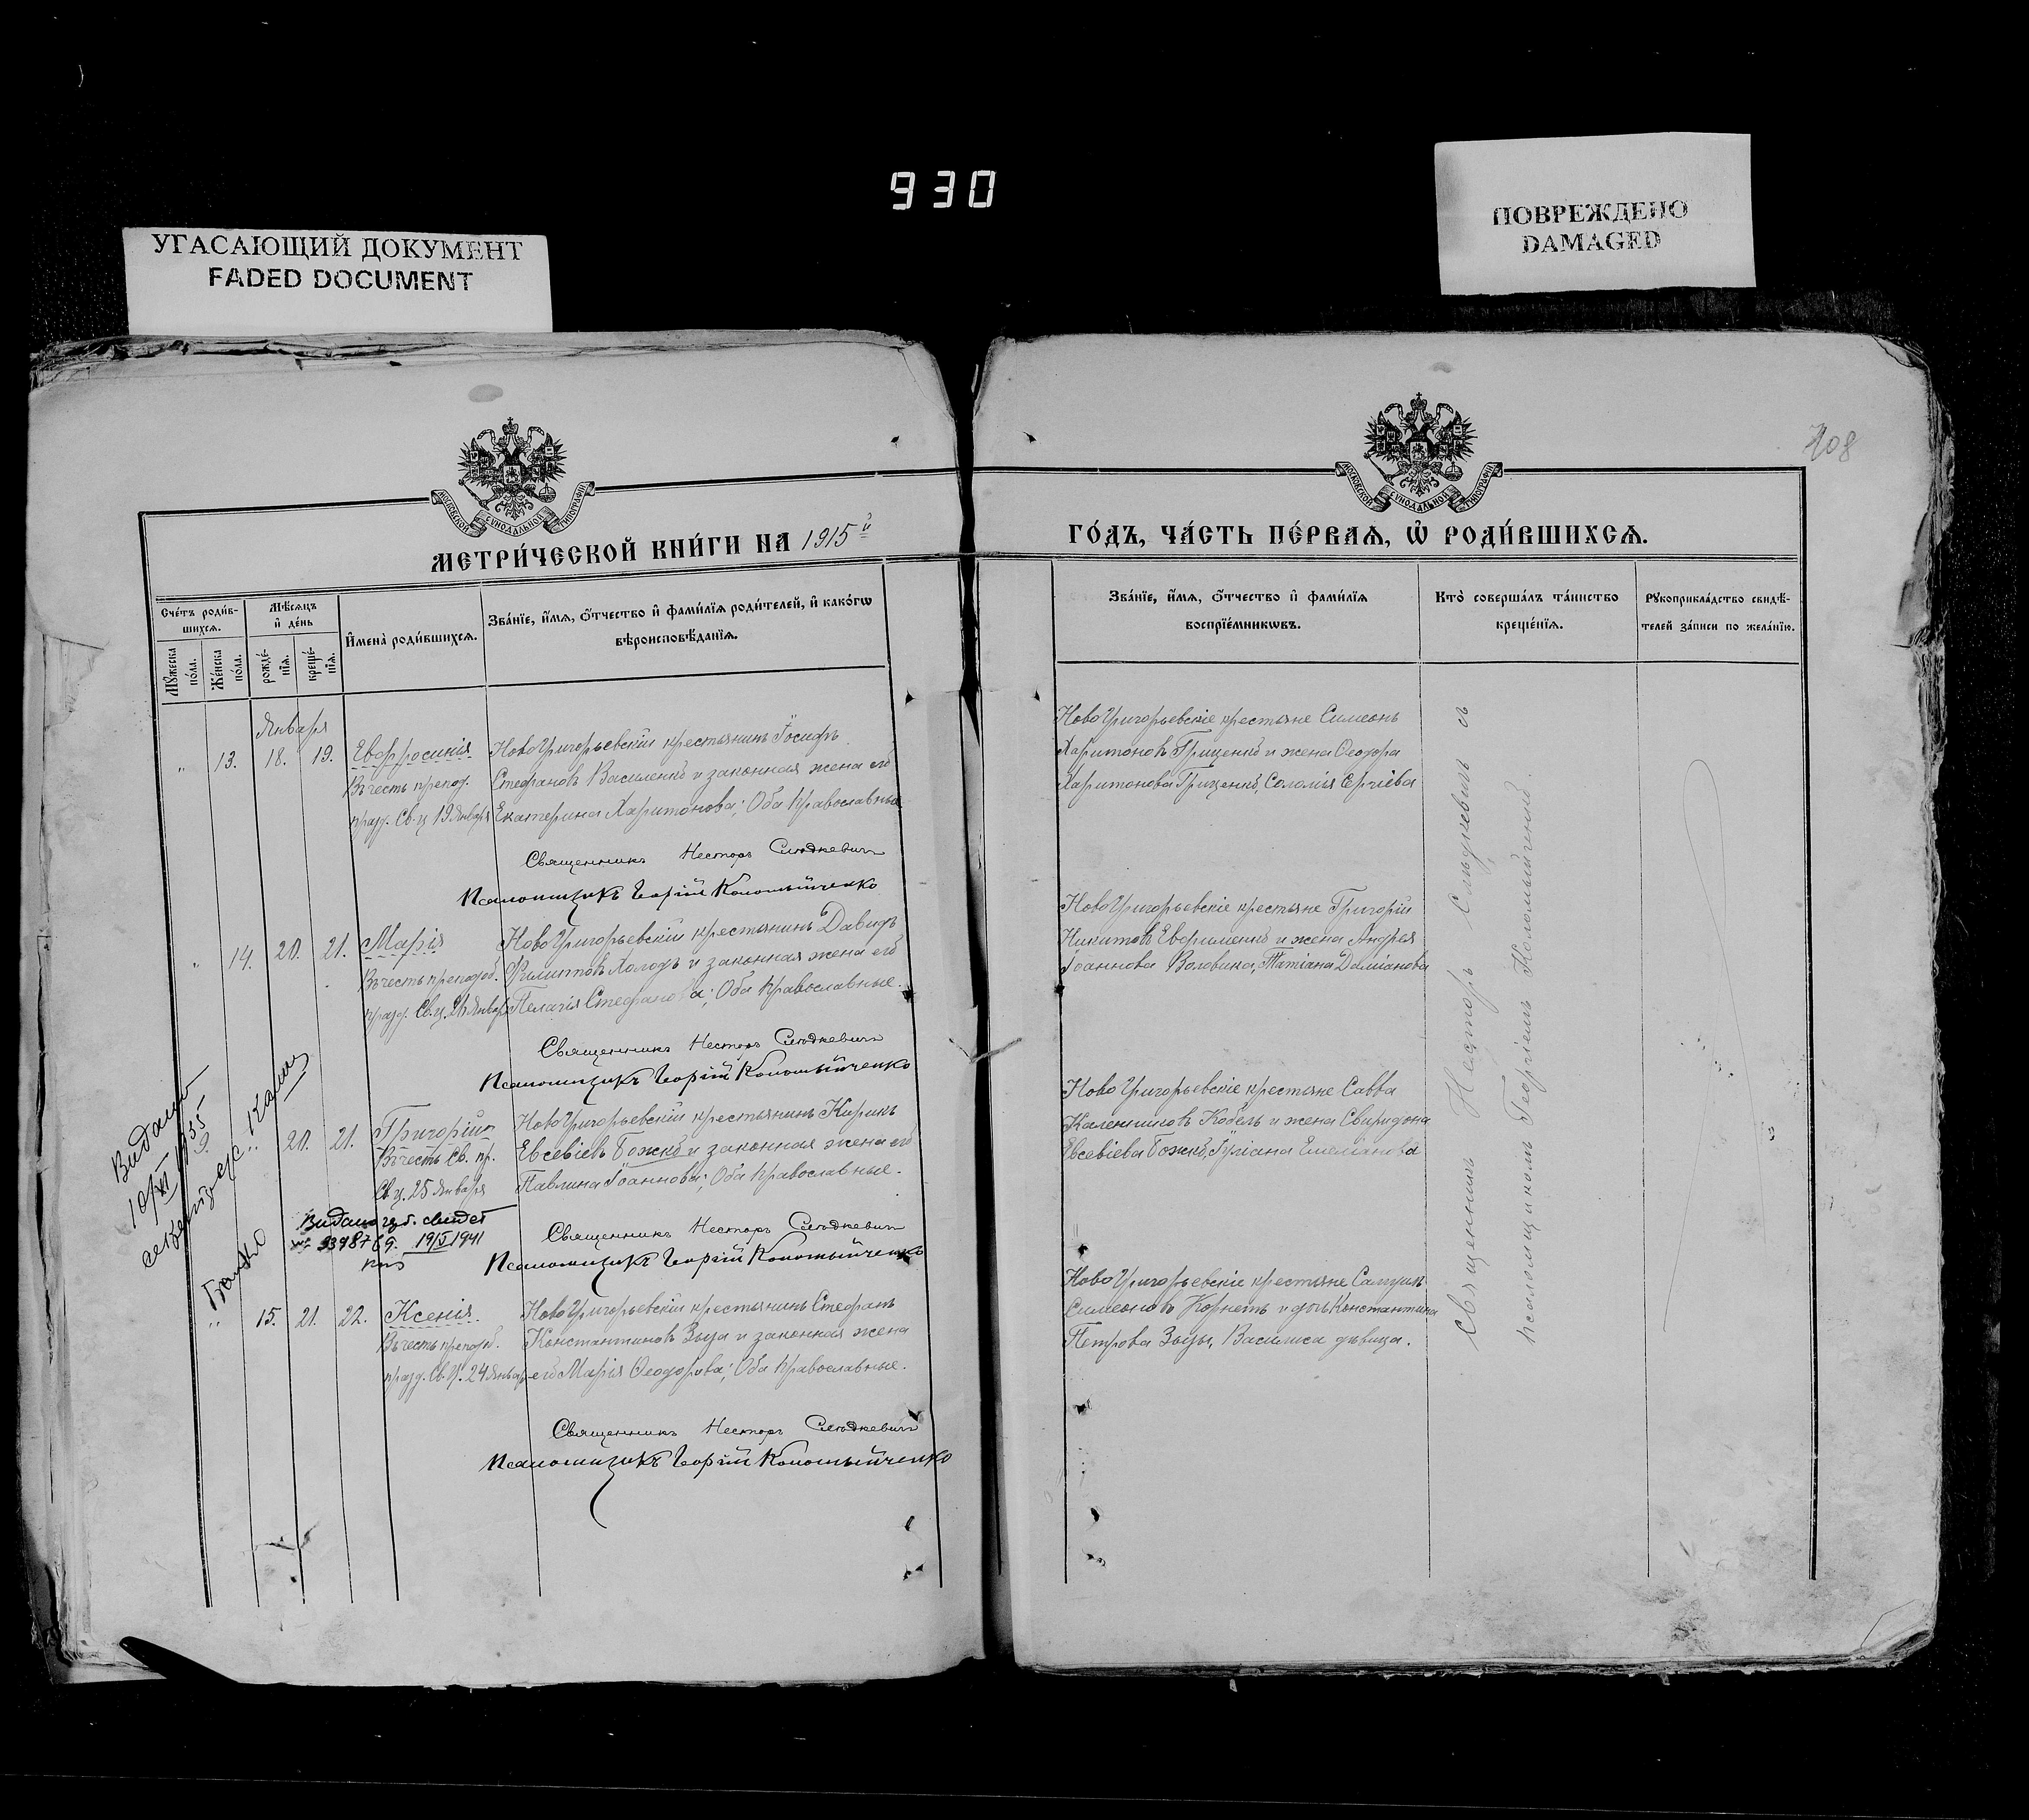 930
УГАСАЮЩИЙ ДОКУМЕНТ
FADED DOCUMENT
ПОВРЕЖДЕНО
DAMAGED
408
МОСКОВСКОЙ СѴНОДАЛЬНОЙ ТИПОГРАФІИ
МОСКОВСКОЙ СѴНОДАЛЬНОЙ ТИПОГРАФІИ
МЕТРИ́ЧЕСКОЙ КНИ́ГИ НА 1915й
ГО́ДЪ, ЧА́СТЬ ПЕ́РВАѦ, Ѡ҆ РОДИ́ВШИХСѦ.
Сче́тъ роди́в-
шихсѧ.
Мꙋ́жеска по́ла.
Же́нска по́ла.
Мѣ́сѧцъ
и҆ де́нь
рожде́-
нїѧ.
креще́-
нїѧ.
И҆мена̀ роди́вшихсѧ.
Зва́нїе, и҆́мѧ, ѻ҆́тчество и҆ фами́лїѧ роди́телей, и҆ како́гѡ
вѣроисповѣ́данїѧ.
Зва́нїе, и҆́мѧ, ѻ҆́тчество и҆ фами́лїѧ
воспрїе́мникѡвъ.
Кто̀ соверша́лъ та́инство
креще́нїѧ.
Рꙋкоприкла́дство свидѣ́-
телей за́писи по жела́нїю.
Января
" 13. 18. 19. Евфросинія
Въ честь препод.
празд. Св. ц. 19 Января
НовоГригорьевскій крестьянинъ Іосифъ
Стефановъ Василенко и законная жена его
Екатерина Харитонова; Оба Православные
Священникъ Несторъ Слюдкевичъ
Псаломщикъ Георгій Коломыйченко
НовоГригорьевскіе крестьяне Симеонъ
Харитоновъ Гриценко и жена Ѳеодора
Харитонова Гриценко, Соломія
" 14. 20. 21. Марія
Въ честь преподоб.
празд. Св. ц. 26 Января
НовоГригорьевскій крестьянинъ Давидъ
Филиповъ Холодъ и законная жена его
Пелагія Стефанова; Оба Православные.
Священникъ Несторъ Слюдкевичъ
Псаломщикъ Георгій Коломыйченко
НовоГригорьевскіе крестьяне Григорій
Никитовъ Ефименко и жена Андрея
Іоаннова Воловика, Татіана Даміанова
Видано
10/XI 1935
Божко
20. 21. Григорій
Въ честь Св. пр.
Св. ц. 25 Января
НовоГригорьевскій крестьянинъ Кирикъ
Евсевіевъ Божко и законная жена его
Павлина Іоаннова; Оба Православные.
Видано свидет
19/V 1941
Священникъ Несторъ Слюдкевичъ
Псаломщикъ Георгій Коломыйченко
НовоГригорьевскіе крестьяне Савва
Каленниковъ Кобель и жена Свиридона
Евсевіева Божко, Іуліана Емеліанова
" 15. 21. 22. Ксенія
Въ честь преподоб.
празд. Св. ц. 24 Января
НовоГригорьевскій крестьянинъ Стефанъ
Константиновъ Зыза и законная жена
его Марія Ѳеодорова; Оба Православные.
Священникъ Несторъ Слюдкевичъ
Псаломщикъ Георгій Коломыйченко
НовоГригорьевскіе крестьяне Самуилъ
Симеоновъ Корнетъ и дочь Константина
Петрова Зызы, Василиса дѣвица.
Священникъ Несторъ Слюдкевичъ съ
псаломщикомъ Георгіемъ Коломыйченко.